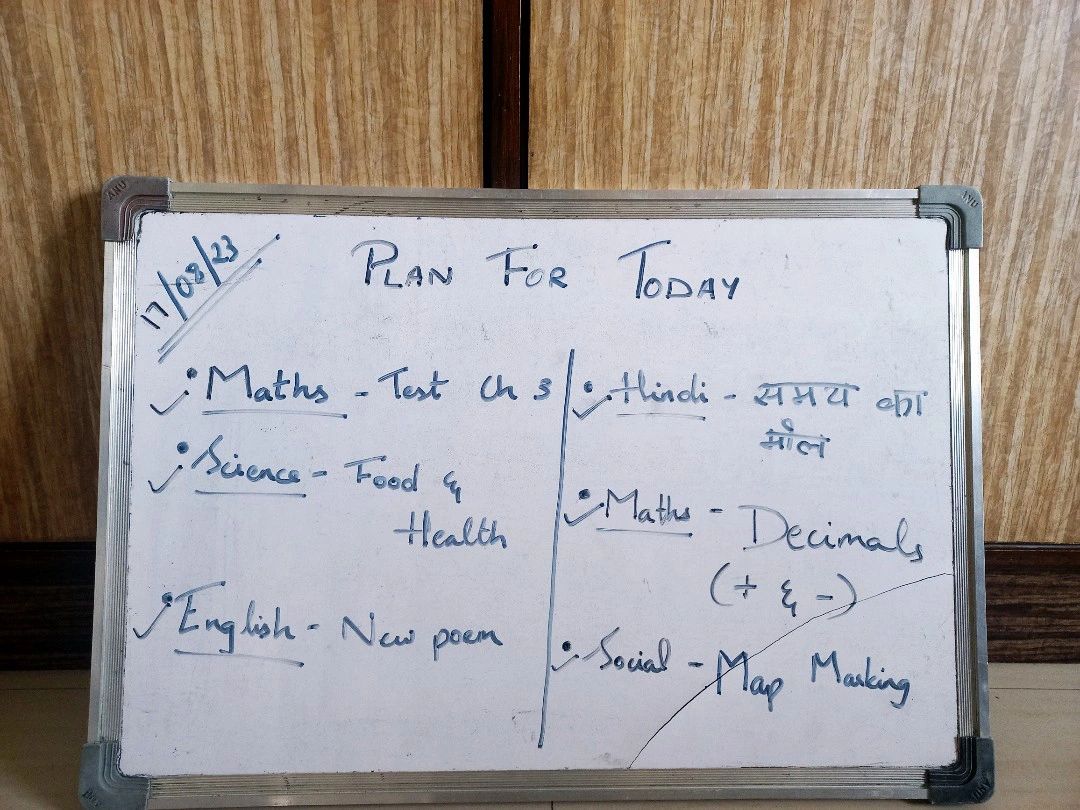 17/08/23
PLAN FOR TODAY
• Maths - Test Ch 3
• Science - Food &
Health
• English - New poem
• Hindi - समय का
मोल
• Maths - Decimals
(+ & -)
• Social - Map Marking
ANU
ANU